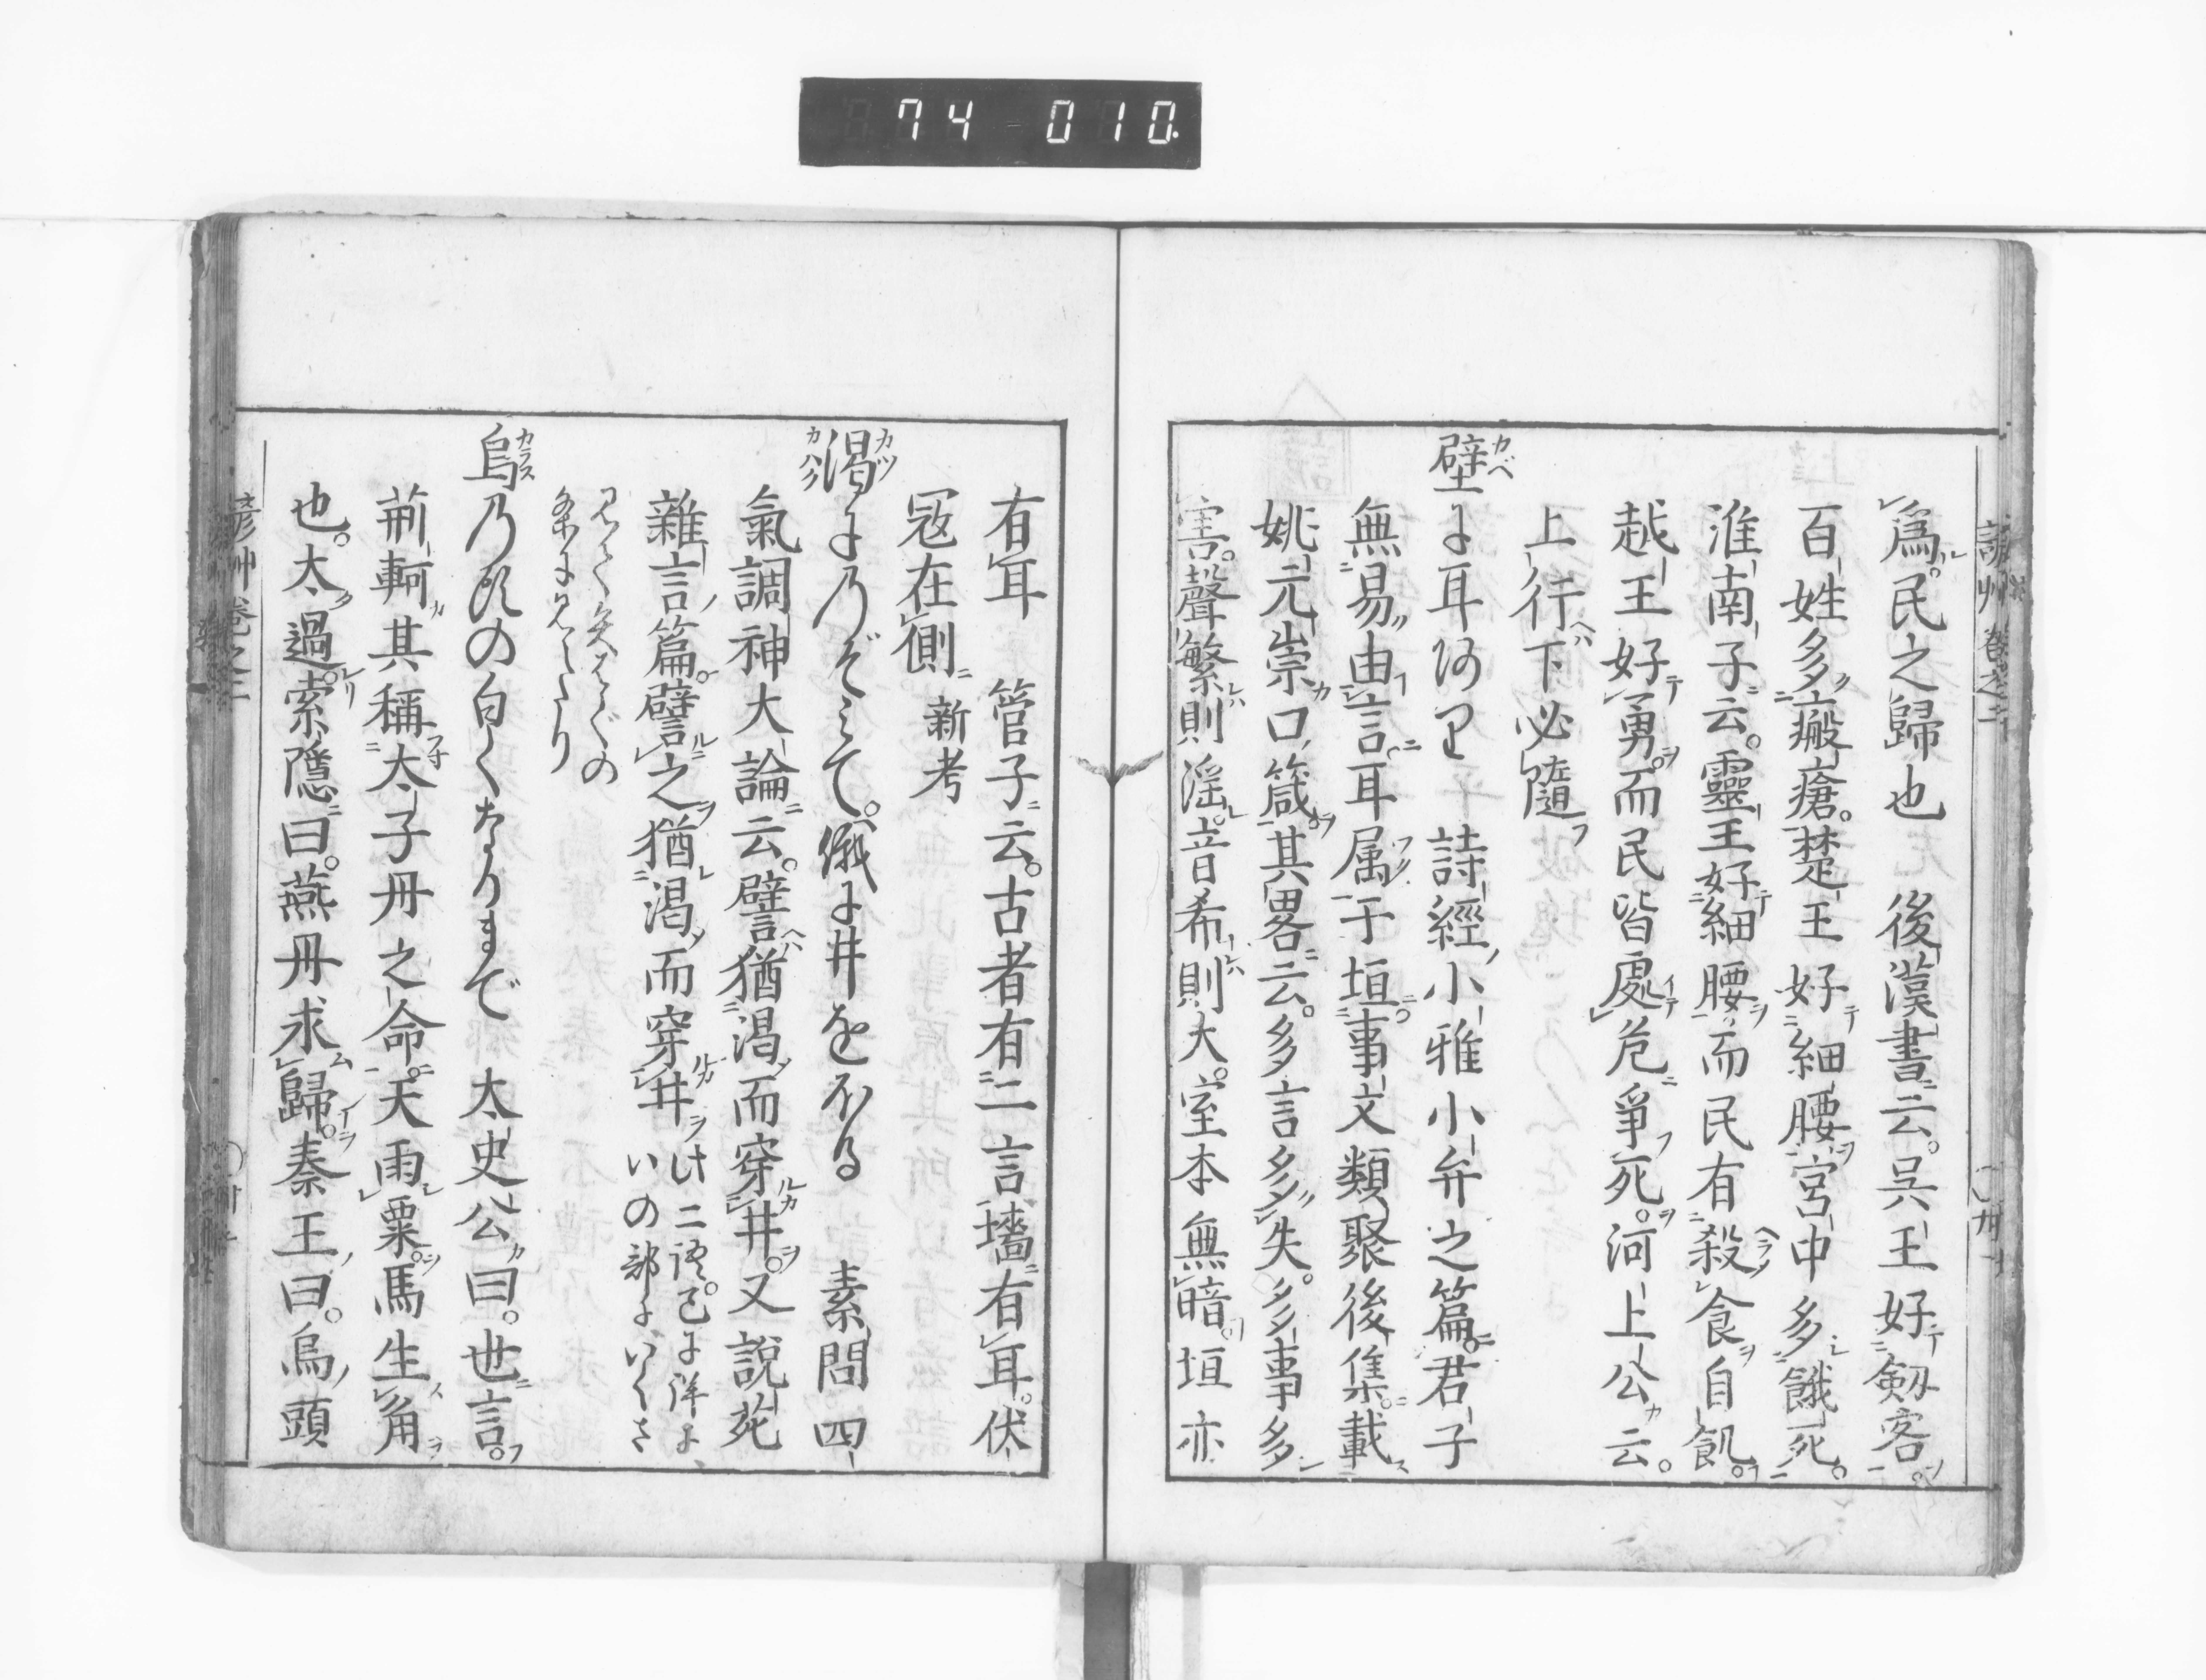 74 010
爲民之歸也　後漢書云。呉王好劔客。
百姓多瘢瘡。楚王好細腰。宮中多餓死。
淮南子云。靈王好細腰而民有殺食自飢。
越王好勇。而民皆處危爭死。河上公云。
上行下必隨
壁に耳あり　詩經小雅小弁之篇。君子
無易由言。耳属于垣。事文類聚後集。載
姚元崇口箴。其畧云。多言多失。多事多
害。聲繁則淫。音希則大。室本無暗。垣亦
有耳　管子云。古者有二言。墻有耳。伏
寇在側　新考
渇にのぞみて。俄に井をほる　素問四
氣調神大論云。譬猶渇而穿井。又說苑
雜言篇。譬之猶渇而穿井　此二語。已に詳に
いの部にいくさ
見て矢をはぐの
条に見えたり
烏の頭の白くなるまで　太史公曰。世言。
荊軻其稱太子丹之命。天雨粟。馬生角
也。太過。索隱曰。燕丹求歸。秦王曰。烏頭
諺艸卷之二